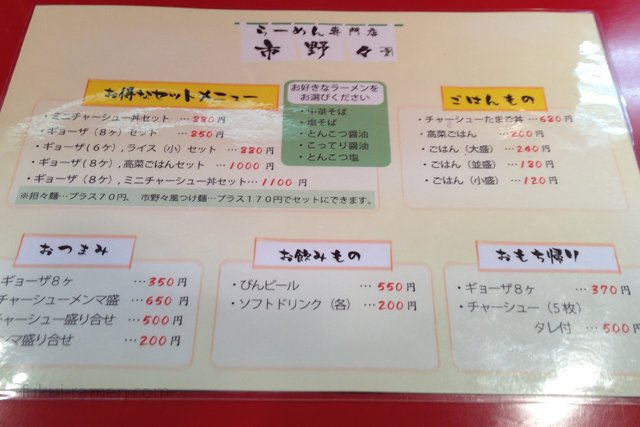 らーめん専門店
市野々
お得なセットメニュー
・ミニチャーシュー丼セット … 880円
・ギョーザ（8ヶ）セット … 850円
・ギョーザ（6ヶ）, ライス（小）セット … 880円
・ギョーザ（8ヶ）, 高菜ごはんセット … 1000円
・ギョーザ（8ヶ）, ミニチャーシュー丼セット… 1100円
※担々麺…プラス70円、 市野々風つけ麺…プラス170円でセットにできます。
お好きなラーメンを
お選びください
・中華そば
・塩そば
・とんこつ醤油
・こってり醤油
・とんこつ塩
ごはんもの
・チャーシューたまご丼 …680円
・高菜ごはん …260円
・ごはん（大盛）…240円
・ごはん（並盛）…180円
・ごはん（小盛）…120円
おつまみ
ギョーザ8ヶ …350円
チャーシューメンマ盛 …650円
チャーシュー盛り合せ …500円
ンマ盛り合せ …200円
お飲みもの
・びんビール … 550円
・ソフトドリンク（各）…200円
おもち帰り
・ギョーザ8ヶ … 370円
・チャーシュー（5枚）
タレ付 …500円